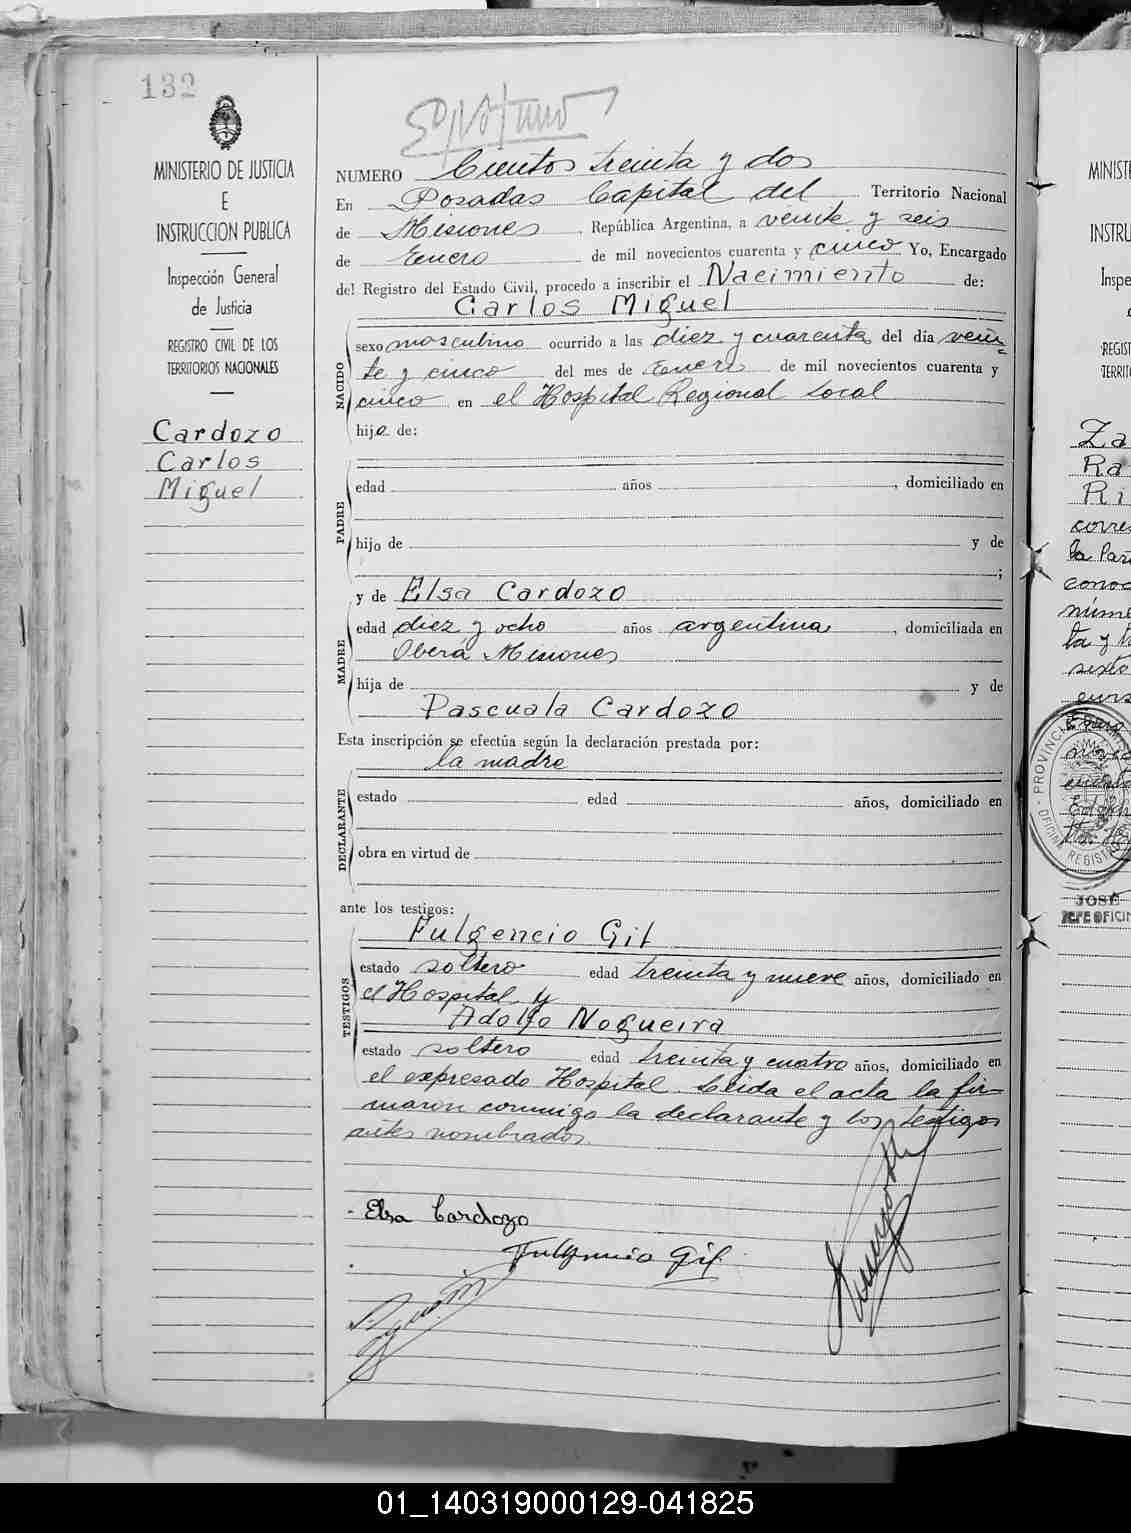 132
MINISTERIO DE JUSTICIA
E
INSTRUCCION PUBLICA
Inspección General
de Justicia
REGISTRO CIVIL DE LOS
TERRITORIOS NACIONALES
Cardozo
Carlos
Miguel
NUMERO Cientos treinta y dos
En Posadas Capital del Territorio Nacional
de Misiones, República Argentina, a veinte y seis
de Enero de mil novecientos cuarenta y cinco Yo, Encargado
del Registro del Estado Civil, procedo a inscribir el Nacimiento de:
Carlos Miguel
NACIDO
sexo masculino ocurrido a las diez y cuarenta del día vein-
te y cinco del mes de Enero de mil novecientos cuarenta y
cinco en el Hospital Regional local
hijo de:
PADRE
edad años , domiciliado en
hijo de y de
;
y de Elsa Cardozo
MADRE
edad diez y ocho años argentina, domiciliada en
Oberá Misiones
hija de y de
Pascuala Cardozo
Esta inscripción se efectúa según la declaración prestada por:
la madre
DECLARANTE
estado edad años, domiciliado en
obra en virtud de
ante los testigos:
Fulgencio Gil
TESTIGOS
estado soltero edad treinta y nueve años, domiciliado en
el Hospital y
Adolfo Nogueira
estado soltero edad treinta y cuatro años, domiciliado en
el expresado Hospital. Leida el acta la fir-
maron conmigo la declarante y los testigos
antes nombrados.
Elsa Cardozo
Fulgencio Gil
MINIST
INSTRU
Inspe
REGIST
TERRIT
Za
Ra
Ri
corre
la Par
conoc
núme
ta y t
sexto
curs
PROVINCIA
OFICINA REGISTRO
JOSÉ
JEFE OFICIN
01_140319000129-041825